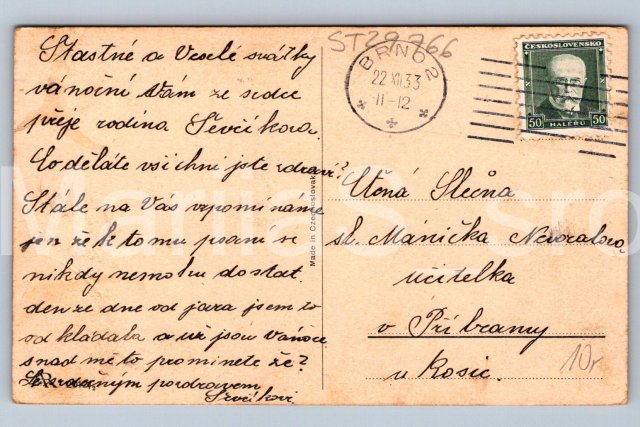 Šťastné a Veselé svátky
vánoční Vám ze srdce
přeje rodina Ševčíkova.
Co děláte všichni jste zdraví?
Stále na Vás vzpomínáme
jen že k tomu psaní se
nikdy nemohu dostat.
den ze dne od jara jsem to
od kládala a už jsou Vánoce
snad mě to prominete že?
Se srdečným pozdravem
Ševčíkovi.
Made in Czechoslovakia
ST29766
BRNO 2
22 XII 33
11-12
ČESKOSLOVENSKO
50 HALÉŘŮ 50
Ctěná Slečna
sl. Mánička
učitelka
v Příbramy
u Rosic.
10,-